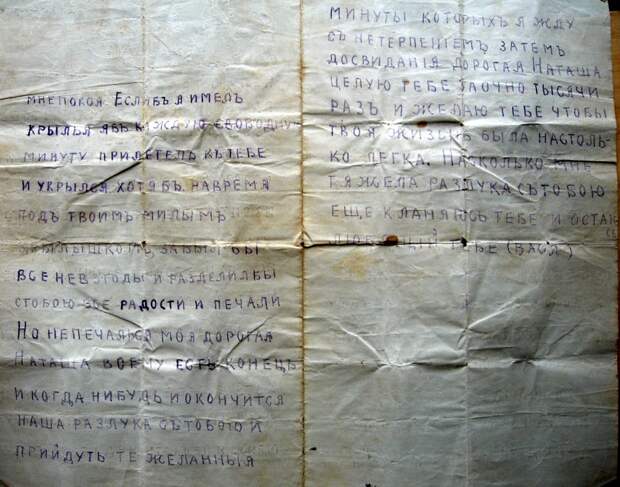 МНЕ ПОКОЯ. ЕСЛИБЪ Я ИМЕЛЪ
КРЫЛЬЯ ЯБЪ КАЖДУЮ СВОБОДНУ
МИНУТУ ПРИЛЕТЕЛЪ КЬ ТЕБЕ
И УКРЫЛСЯ ХОТЯБЪ НАВРЕМЯ
ПОДЪ ТВОИМЪ МИЛЫМЪ
ЗАБЫЛ БЫ
ВСЕ НЕВЗГОДЫ И РАЗДЕЛИЛБЫ
СТОБОЮ ВСЕ РАДОСТИ И ПЕЧАЛИ
НО НЕПЕЧАЛЬСЯ МОЯ ДОРОГАЯ
НАТАША ВСЕМУ ЕСТЬ КОНЕЦЪ
И КОГДА НИБУДЬ И ОКОНЧИТСЯ
НАША РАЗЛУКА СЪ ТОБОЮ И
ПРИЙДУТЬ ТЕ ЖЕЛАННЫЯ
МИНУТЫ КОТОРЫХЪ Я ЖДУ
СЪ НЕТЕРПЕНІЕМЪ ЗАТЕМЪ
ДОСВИДАНІЯ ДОРОГАЯ НАТАША
ЦЕЛУЮ ТЕБЕ ЗАОЧНО ТЫСЯЧИ
РАЗЪ И ЖЕЛАЮ ТЕБЕ ЧТОБЫ
ТВОЯ ЖИЗЬНЬ БЫЛА НАСТОЛЬ-
КО ЛЕГКА. НАСКОЛЬКО МНЕ
ТЯЖЕЛА РАЗЛУКА СЪ ТОБОЮ
ЕЩЕ КЛАНЯЮСЬ ТЕБЕ И ОСТАЮ
ТЕБЕ (ВАСЯ)